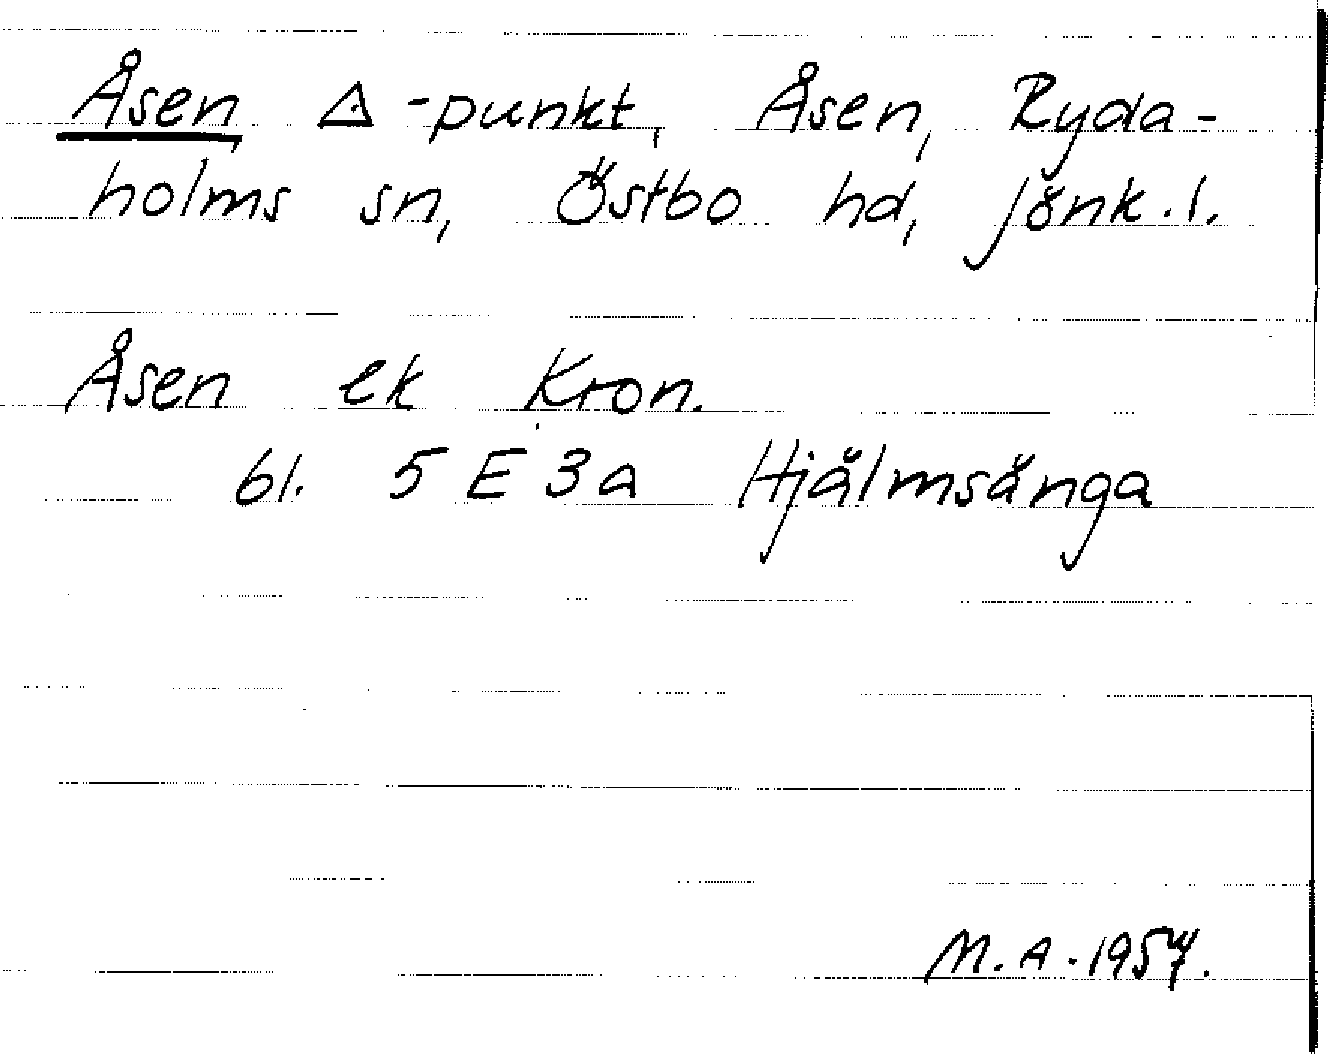 Åsen, △-punkt, Åsen, Ryda-
holms sn, Östbo hd, Jönk. l.
Åsen ek Kron.
bl. 5 E 3 a Hjälmsänga
M. A. 1957.